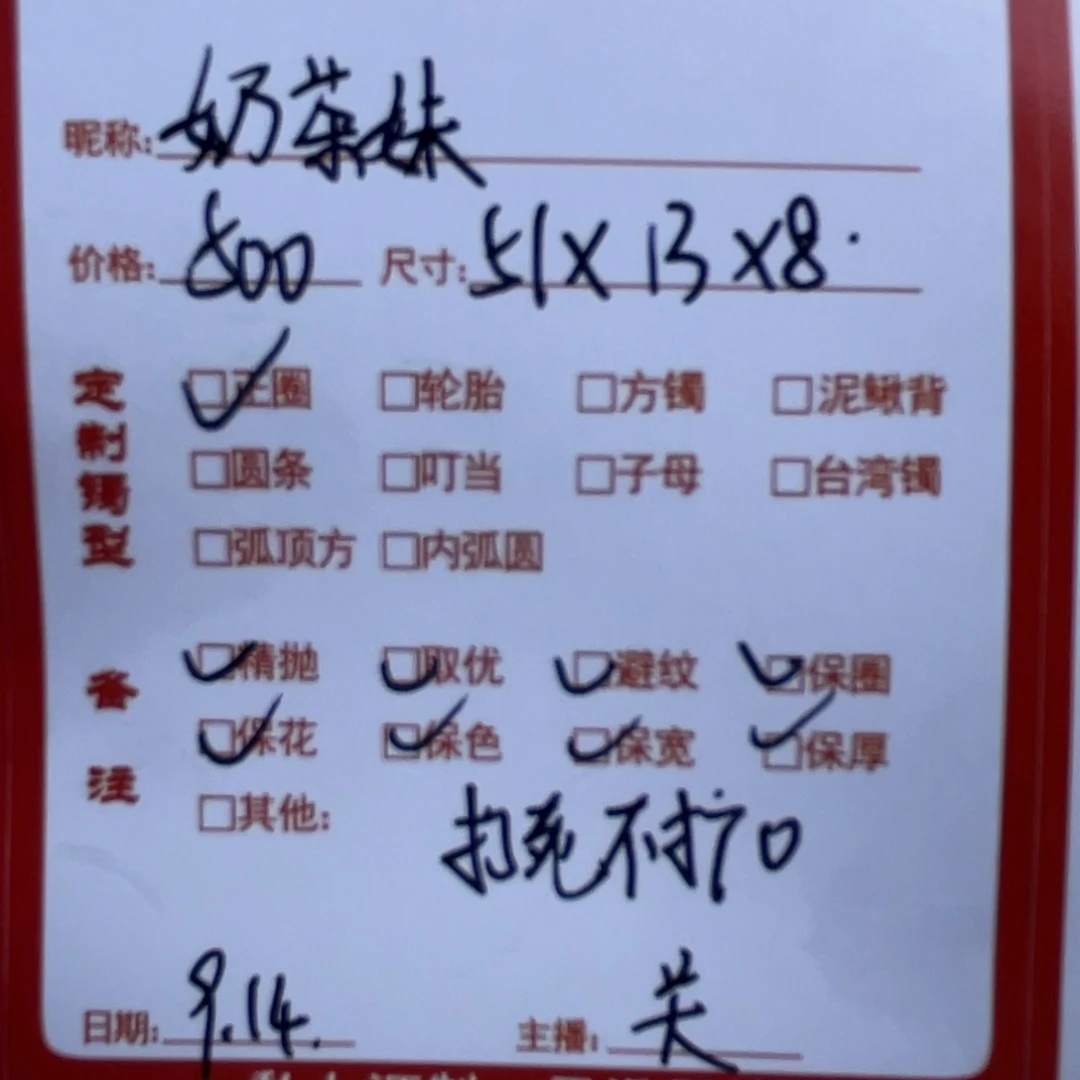 昵称: 奶茶妹
价格: 800 尺寸: 51X13X8.
定制镯型
☑正圈 □轮胎 □方镯 □泥鳅背
□圆条 □叮当 □子母 □台湾镯
□弧顶方 □内弧圆
备注
☑精抛 ☑取优 ☑避纹 ☑保圈
☑保花 ☑保色 ☑保宽 ☑保厚
□其他: 打死不扩口
日期: 9.14. 主播: 关